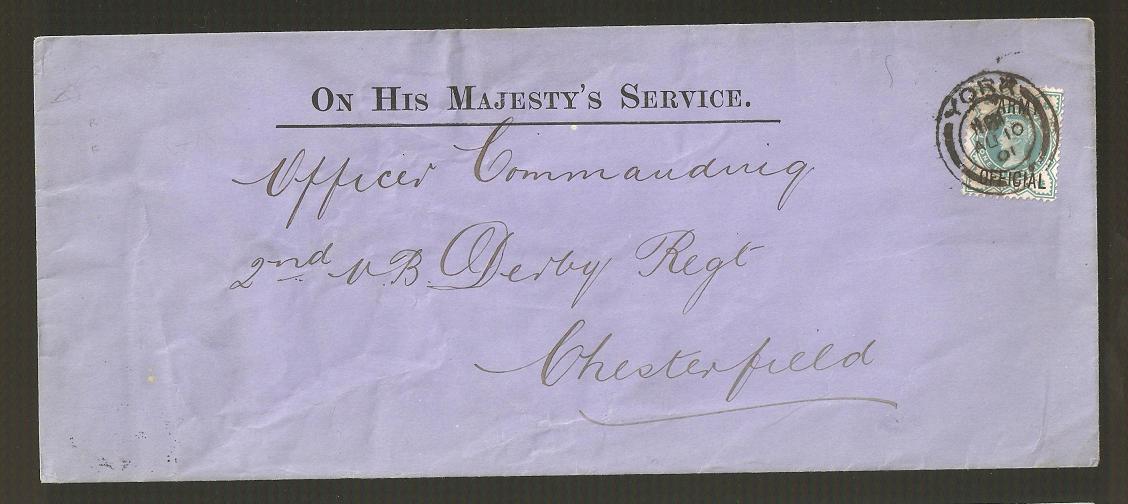 ON HIS MAJESTY'S SERVICE.
YORK
ARMY
AU 10
01
OFFICIAL
Officer Commanding
2nd V.B. Derby Regt
Chesterfield